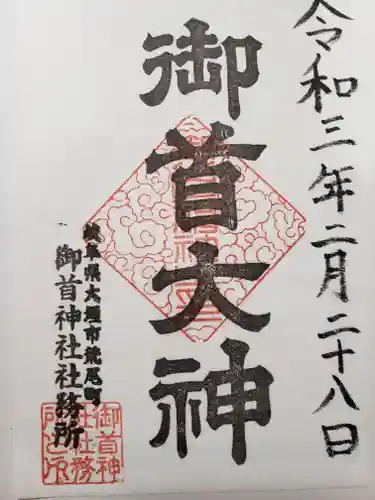 令和三年二月二十八日
御首大神
岐阜県大垣市荒尾町
御首神社社務所
御首神
社社務
所之印